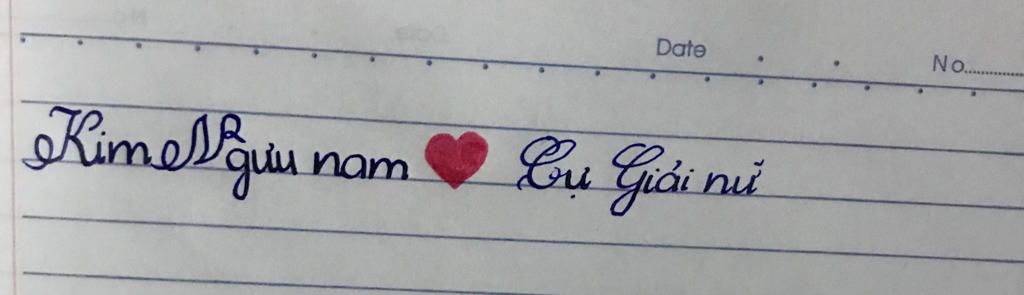 Date . . No..........
Kim Ngưu nam ❤ Cự Giải nữ